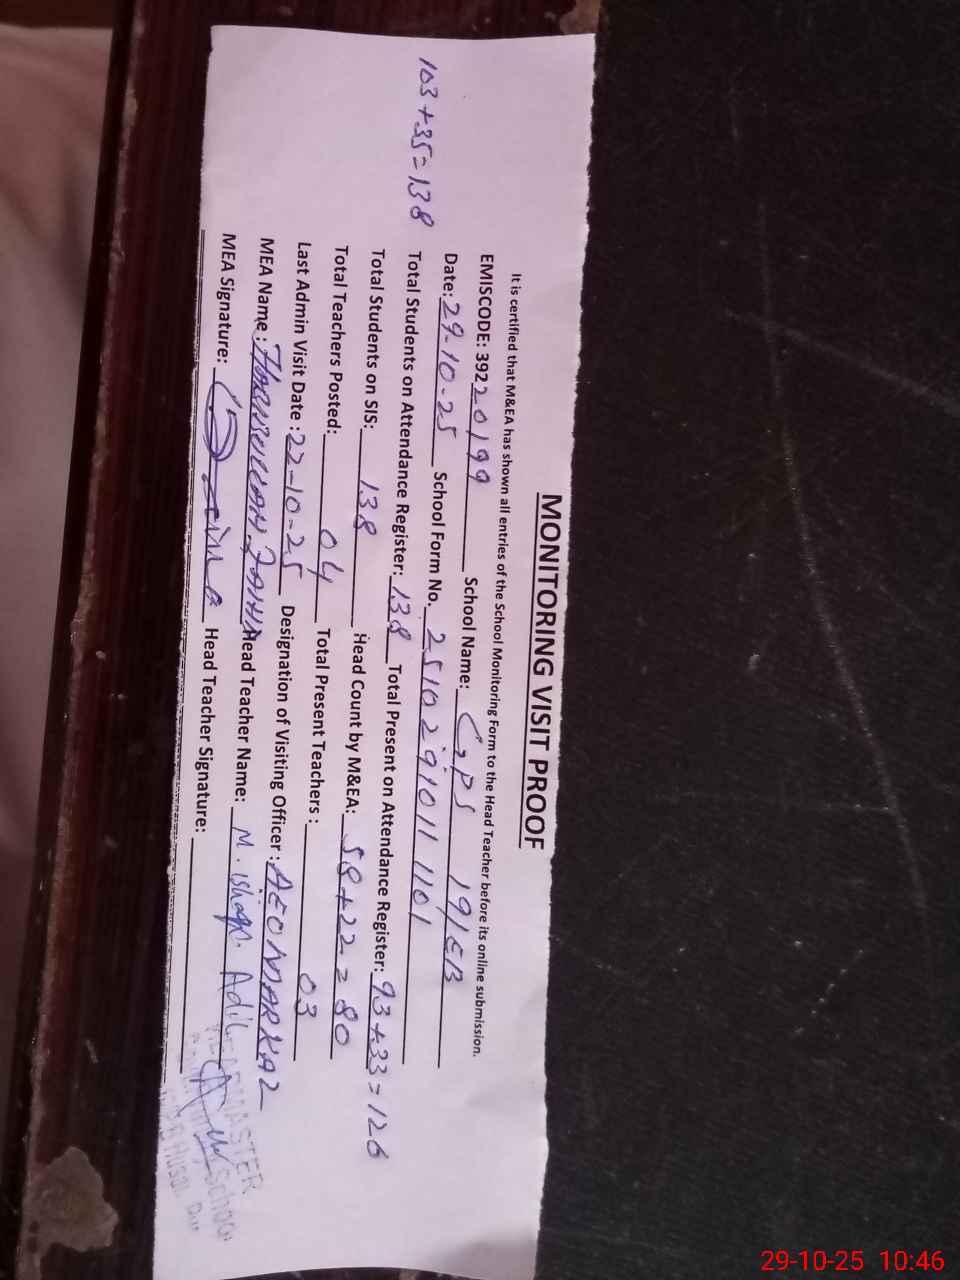 MONITORING VISIT PROOF
It is certified that M&EA has shown all entries of the School Monitoring Form to the Head Teacher before its online submission.
EMISCODE: 39220199 School Name: GPS 191EB
Date: 29-10-25 School Form No. 2510291011 1101
103+35=138 Total Students on Attendance Register: 138 Total Present on Attendance Register: 93+33=126
Total Students on SIS: 138 Head Count by M&EA: 58+22=80
Total Teachers Posted: 04 Total Present Teachers : 03
Last Admin Visit Date : 22-10-25 Designation of Visiting Officer : AEO MARKAZ
MEA Name : Head Teacher Name: M. Ishaq Adil
MEA Signature: Head Teacher Signature:
HEADMASTER
School
29-10-25 10:46